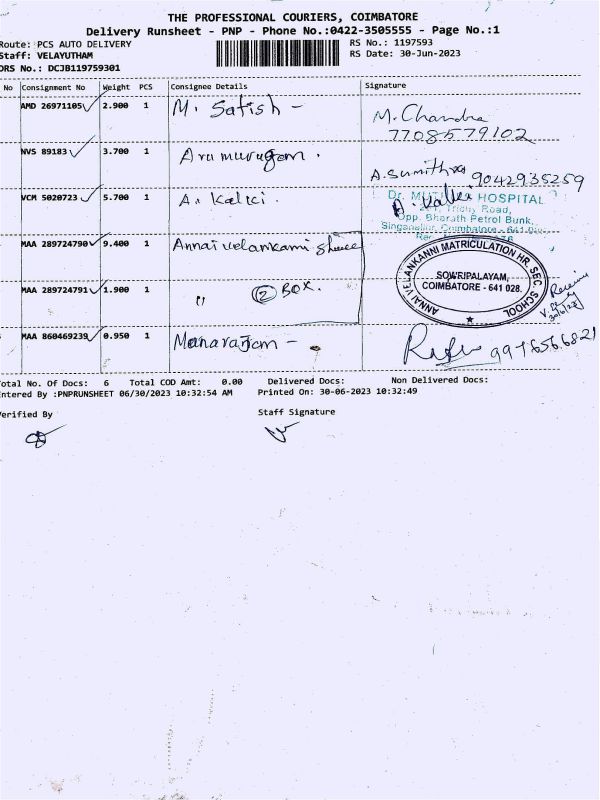 THE PROFESSIONAL COURIERS, COIMBATORE
Delivery Runsheet - PNP - Phone No.:0422-3505555 - Page No.:1
Route: PCS AUTO DELIVERY
RS No.: 1197593
Staff: VELAYUTHAM
RS Date: 30-Jun-2023
DRS No.: DCJB119759301
No Consignment No Weight PCS Consignee Details Signature
AMD 26971105 2.900 1 M. Satish -
M. Chandra
7708579102
NVS 89183 3.700 1 Arumurugam.
A. Sumithra 9042935259
VCM 5020723 5.700 1 A. Kalki.
A. Kalki
Dr. HOSPITAL
Trichy Road,
Opp. Bharath Petrol Bunk,
Coimbatore - 641
MAA 289724790 9.400 1 Annai velankanni
ANNAI VELANKANNI MATRICULATION HR. SEC. SCHOOL
SOWRIPALAYAM,
COIMBATORE - 641 028.
MAA 289724791 1.900 1 " 2 BOX.
Received
MAA 860469239 0.950 1 Manaranjam -
9976566821
Total No. Of Docs: 6 Total COD Amt: 0.00 Delivered Docs: Non Delivered Docs:
Entered By :PNPRUNSHEET 06/30/2023 10:32:54 AM Printed On: 30-06-2023 10:32:49
Verified By
Staff Signature